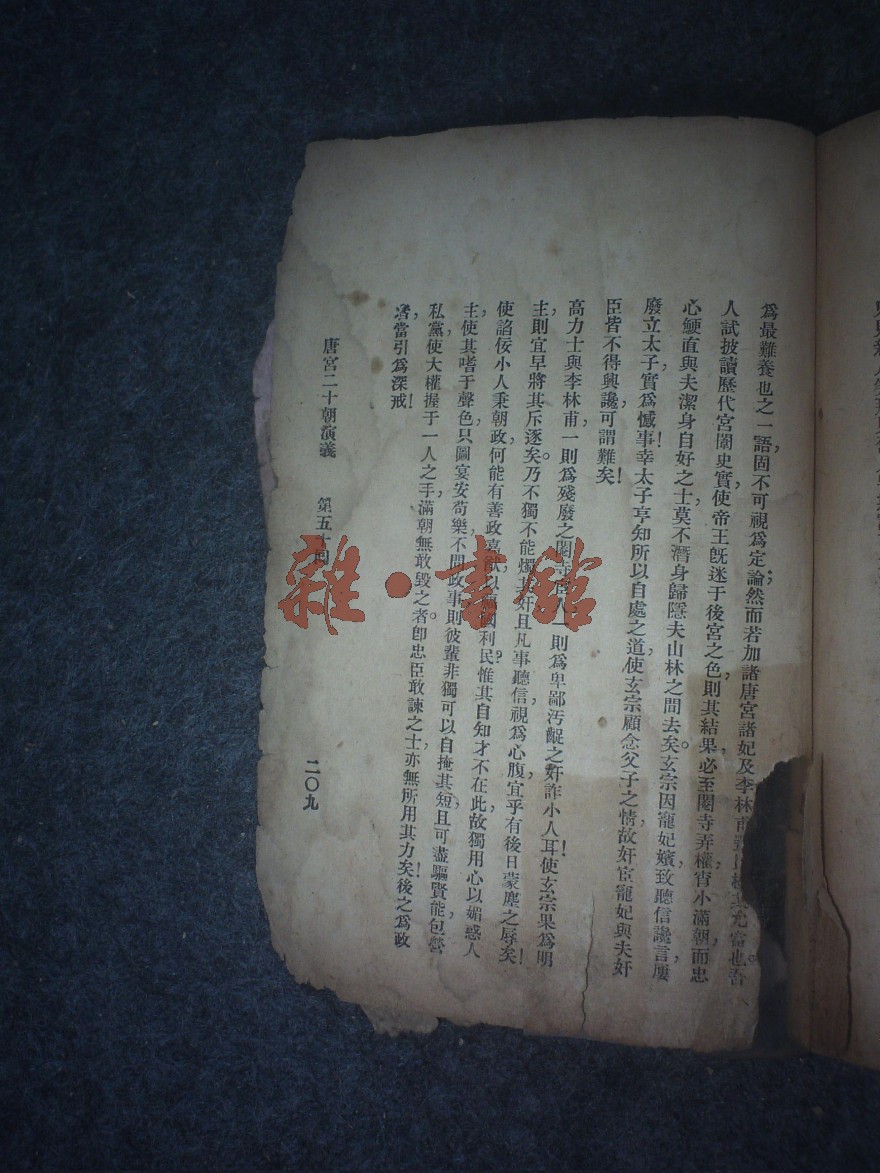 爲最難養也之一語，固不可視爲定論，然而若加諸唐宮諸妃及李林甫 尤當也。吾
人試披讀歷代宮闈史實，使帝王旣迷于後宮之色，則其結果，必至閹寺弄權，宵小滿朝，而忠
心鯁直，與夫潔身自好之士，莫不潛身歸隱夫山林之間去矣。玄宗因寵妃嬪，致聽信讒言，屢
廢立太子，實爲憾事！幸太子亨知所以自處之道，使玄宗顧念父子之情，故奸宦寵妃與夫奸
臣，皆不得興讒，可謂難矣！
高力士與李林甫，一則爲殘廢之閹寺 人，一則爲卑鄙汚齪之奸詐小人耳！使玄宗果爲明
主，則宜早將其斥逐矣。乃不獨不能燭其奸，且凡事聽信，視爲心腹，宜乎有後日蒙塵之辱矣！
使諂佞小人秉朝政，何能有善政嘉猷，以 國利民？惟其自知才不在此，故獨用心以媚惑人
主，使其嗜于聲色，只圖宴安苟樂，不問政事，則彼輩非獨可以自掩其短，且可盡驅賢能，包營
私黨，使大權握于一人之手，滿朝無敢毀之者。卽忠臣敢諫之士，亦無所用其力矣！後之爲政
者，當引爲深戒！
唐宮二十朝演義 第五十回 二〇九
雜·書館